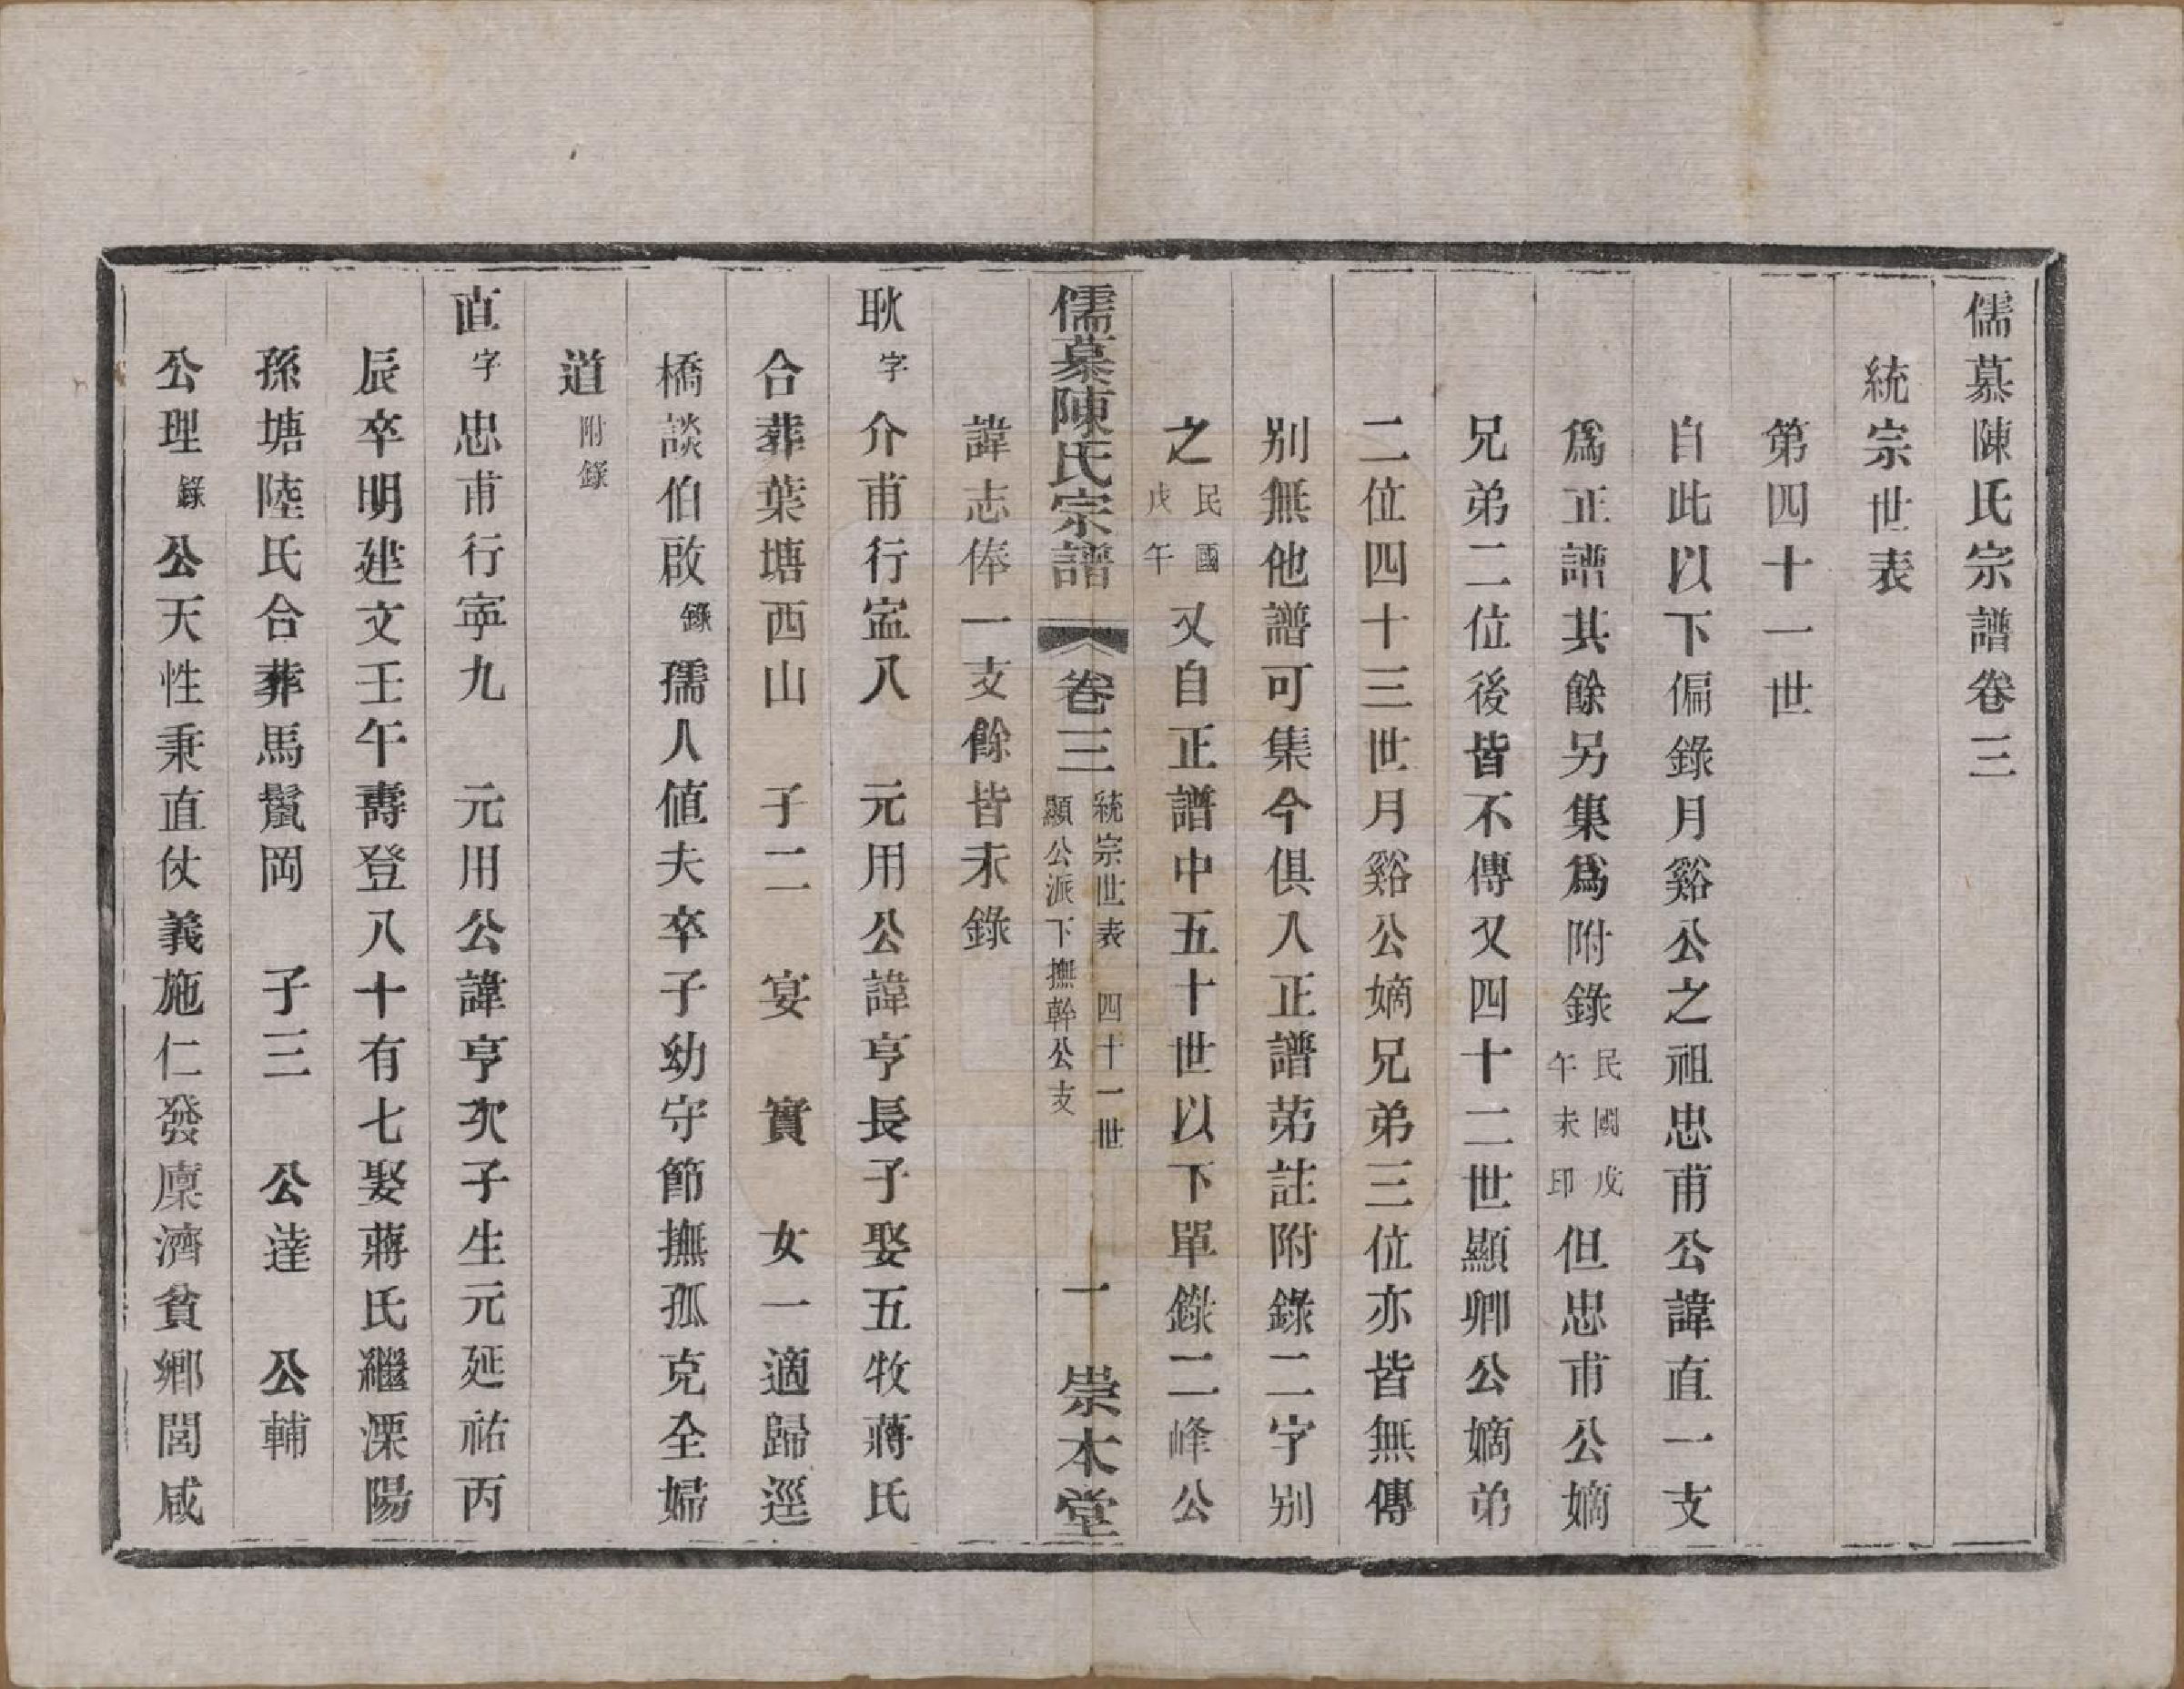 儒慕陳氏宗譜卷三
統宗世表
第四十一世
自此以下偏錄月谿公之祖忠甫公諱直一支
爲正譜其餘另集爲附錄民國戊午未印但忠甫公嫡
兄弟二位後皆不傳又四十二世顯卿公嫡弟
二位四十三世月谿公嫡兄弟三位亦皆無傳
別無他譜可集今俱入正譜苐註附錄二字別
之民國戊午又自正譜中五十世以下單錄二峰公
諱志俸一支餘皆未錄
儒慕陳氏宗譜 卷三 統宗世表 四十一世 顯公派下撫幹公支 一 崇本堂
耿字介甫行寍八 元用公諱亨長子娶五牧蔣氏
合葬葉塘西山 子二 宴 實 女一適歸逕
橋談伯啟錄孺人値夫卒子幼守節撫孤克全婦
道附錄
直字忠甫行寍九 元用公諱亨次子生元延祐丙
辰卒明建文壬午壽登八十有七娶蔣氏繼溧陽
孫塘陸氏合葬馬鬣岡 子三 公達 公輔
公理錄公天性秉直仗義施仁發廩濟貧鄉閭咸